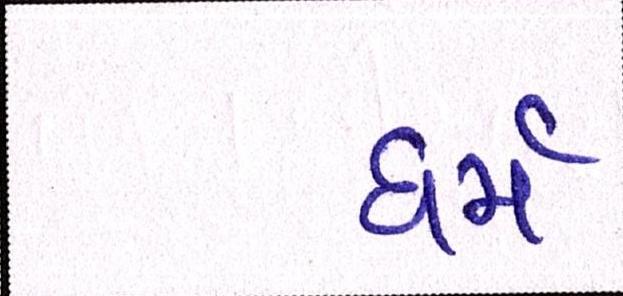 ધર્મ